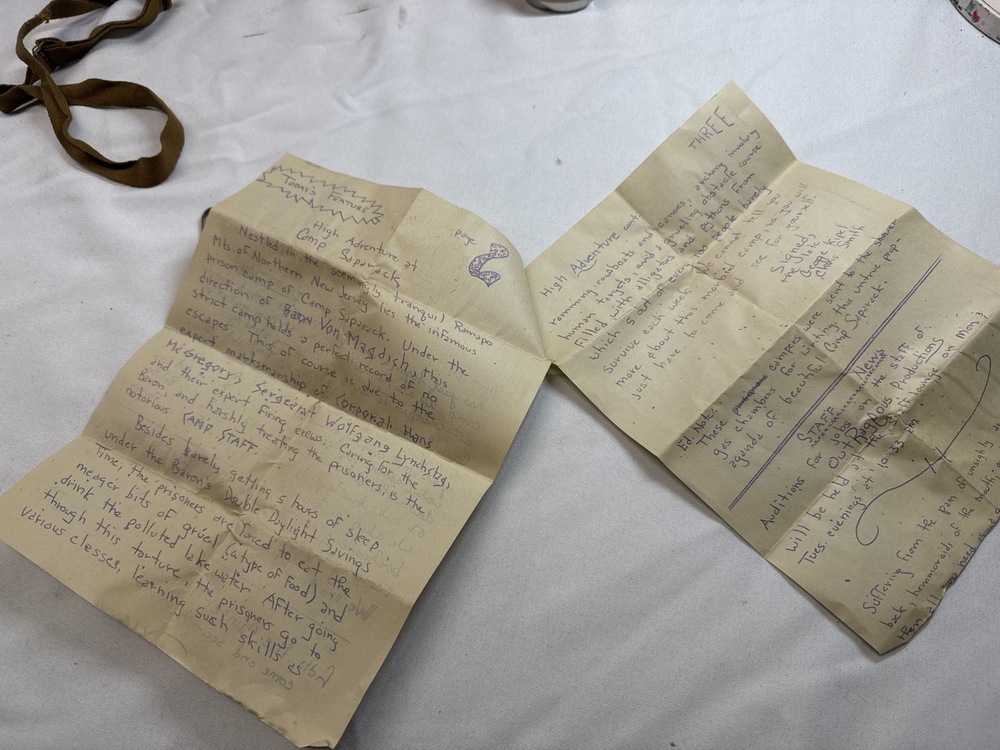 TODAY'S FEATURE
page
2
High Adventure at
Camp Saparack
Nestled in the seemingly tranquil Ramapo
Mts of Northern New Jersey lies the infamous
prison camp of Camp Saparack. Under the
direction of Baron Von Magdish, this
strict camp holds a perfect record of no
escapes. This of course is due to the
expert marksmanship of Corporal Hans
McGregory, Sergeant Wolfgang Lynchsburg,
and their expert firing crews. Caring for the
Baron, and harshly treating the prisoners, is the
notorious CAMP STAFF.
Besides barely getting 5 hours of sleep
under the Baron's Double Daylight Savings
Time, the prisoners are forced to eat the
meager bits of gruel (a type of food) and
drink the polluted lake water. After going
through this torture, the prisoners go to
various classes, learning such skills as
THREE
High Adventure cont.
ramming rowboats and canoes, archery involving
human targets, and a grueling obstacle course
filled with alligators and pythons from
which 5 out of every 20 people barely
survive each week. I cannot tell you
more about this morbid camp, as you will
just have to come and see for yourself.
Signed,
Reliable
George Kiper
Chris Smith
Ed. Note:
These campers were sent to the shower
gas chambers for writing this untrue prop-
aganda of beautiful Camp Saparack.
STAFF News
Auditions for jobs on the staff of
Outrageous Productions
will be held at the Stiff Lounge on Mon. 3
Tues. evenings at 10:33 pm
Suffering from the pain of unsightly
back, hemmoroids of the mouth,
then all you need is a